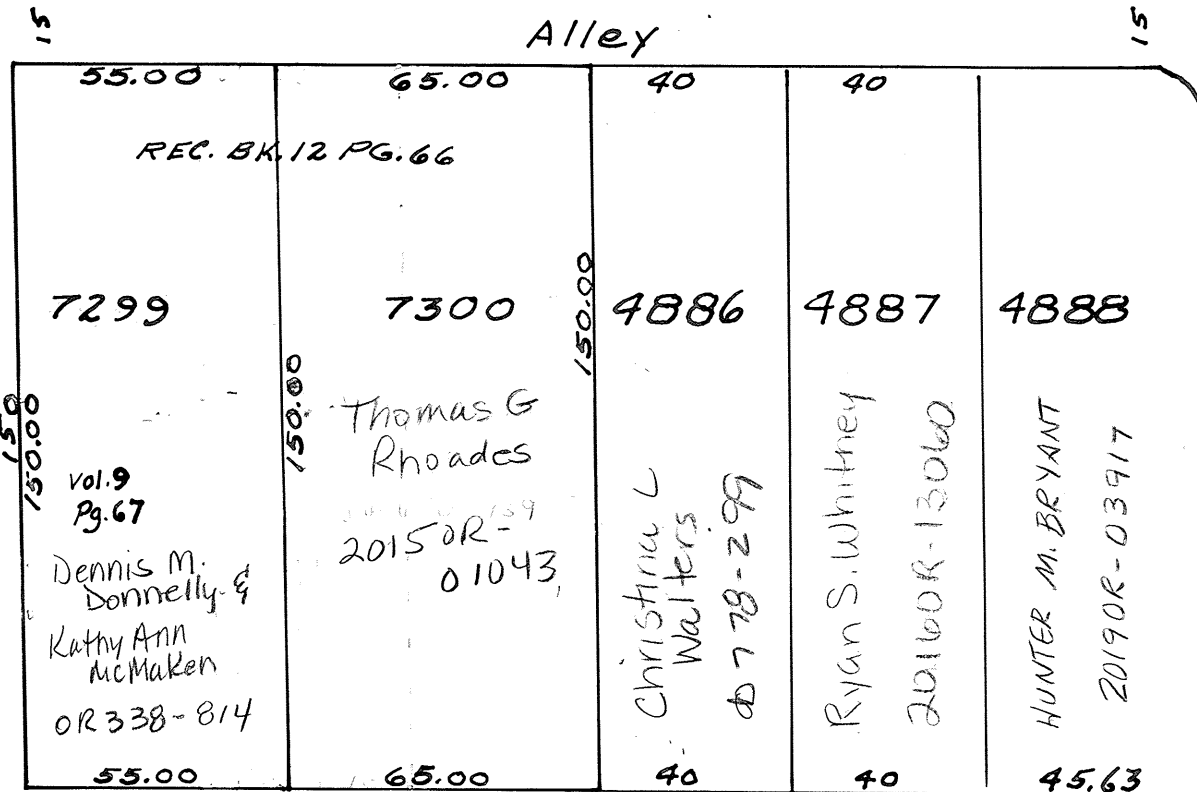 15
Alley
15
55.00
65.00
40
40
REC. BK. 12 PG. 66
7299
7300
4886
4887
4888
150
150.00
150.00
150.00
Vol. 9
Pg. 67
Dennis M.
Donnelly &
Kathy Ann
McMaken
OR 338-814
Thomas G
Rhoades
2015 OR-
01043
Christina L
Walters
D 778-299
Ryan S. Whitney
2016OR-13060
HUNTER M. BRYANT
2019OR-03917
55.00
65.00
40
40
45.63